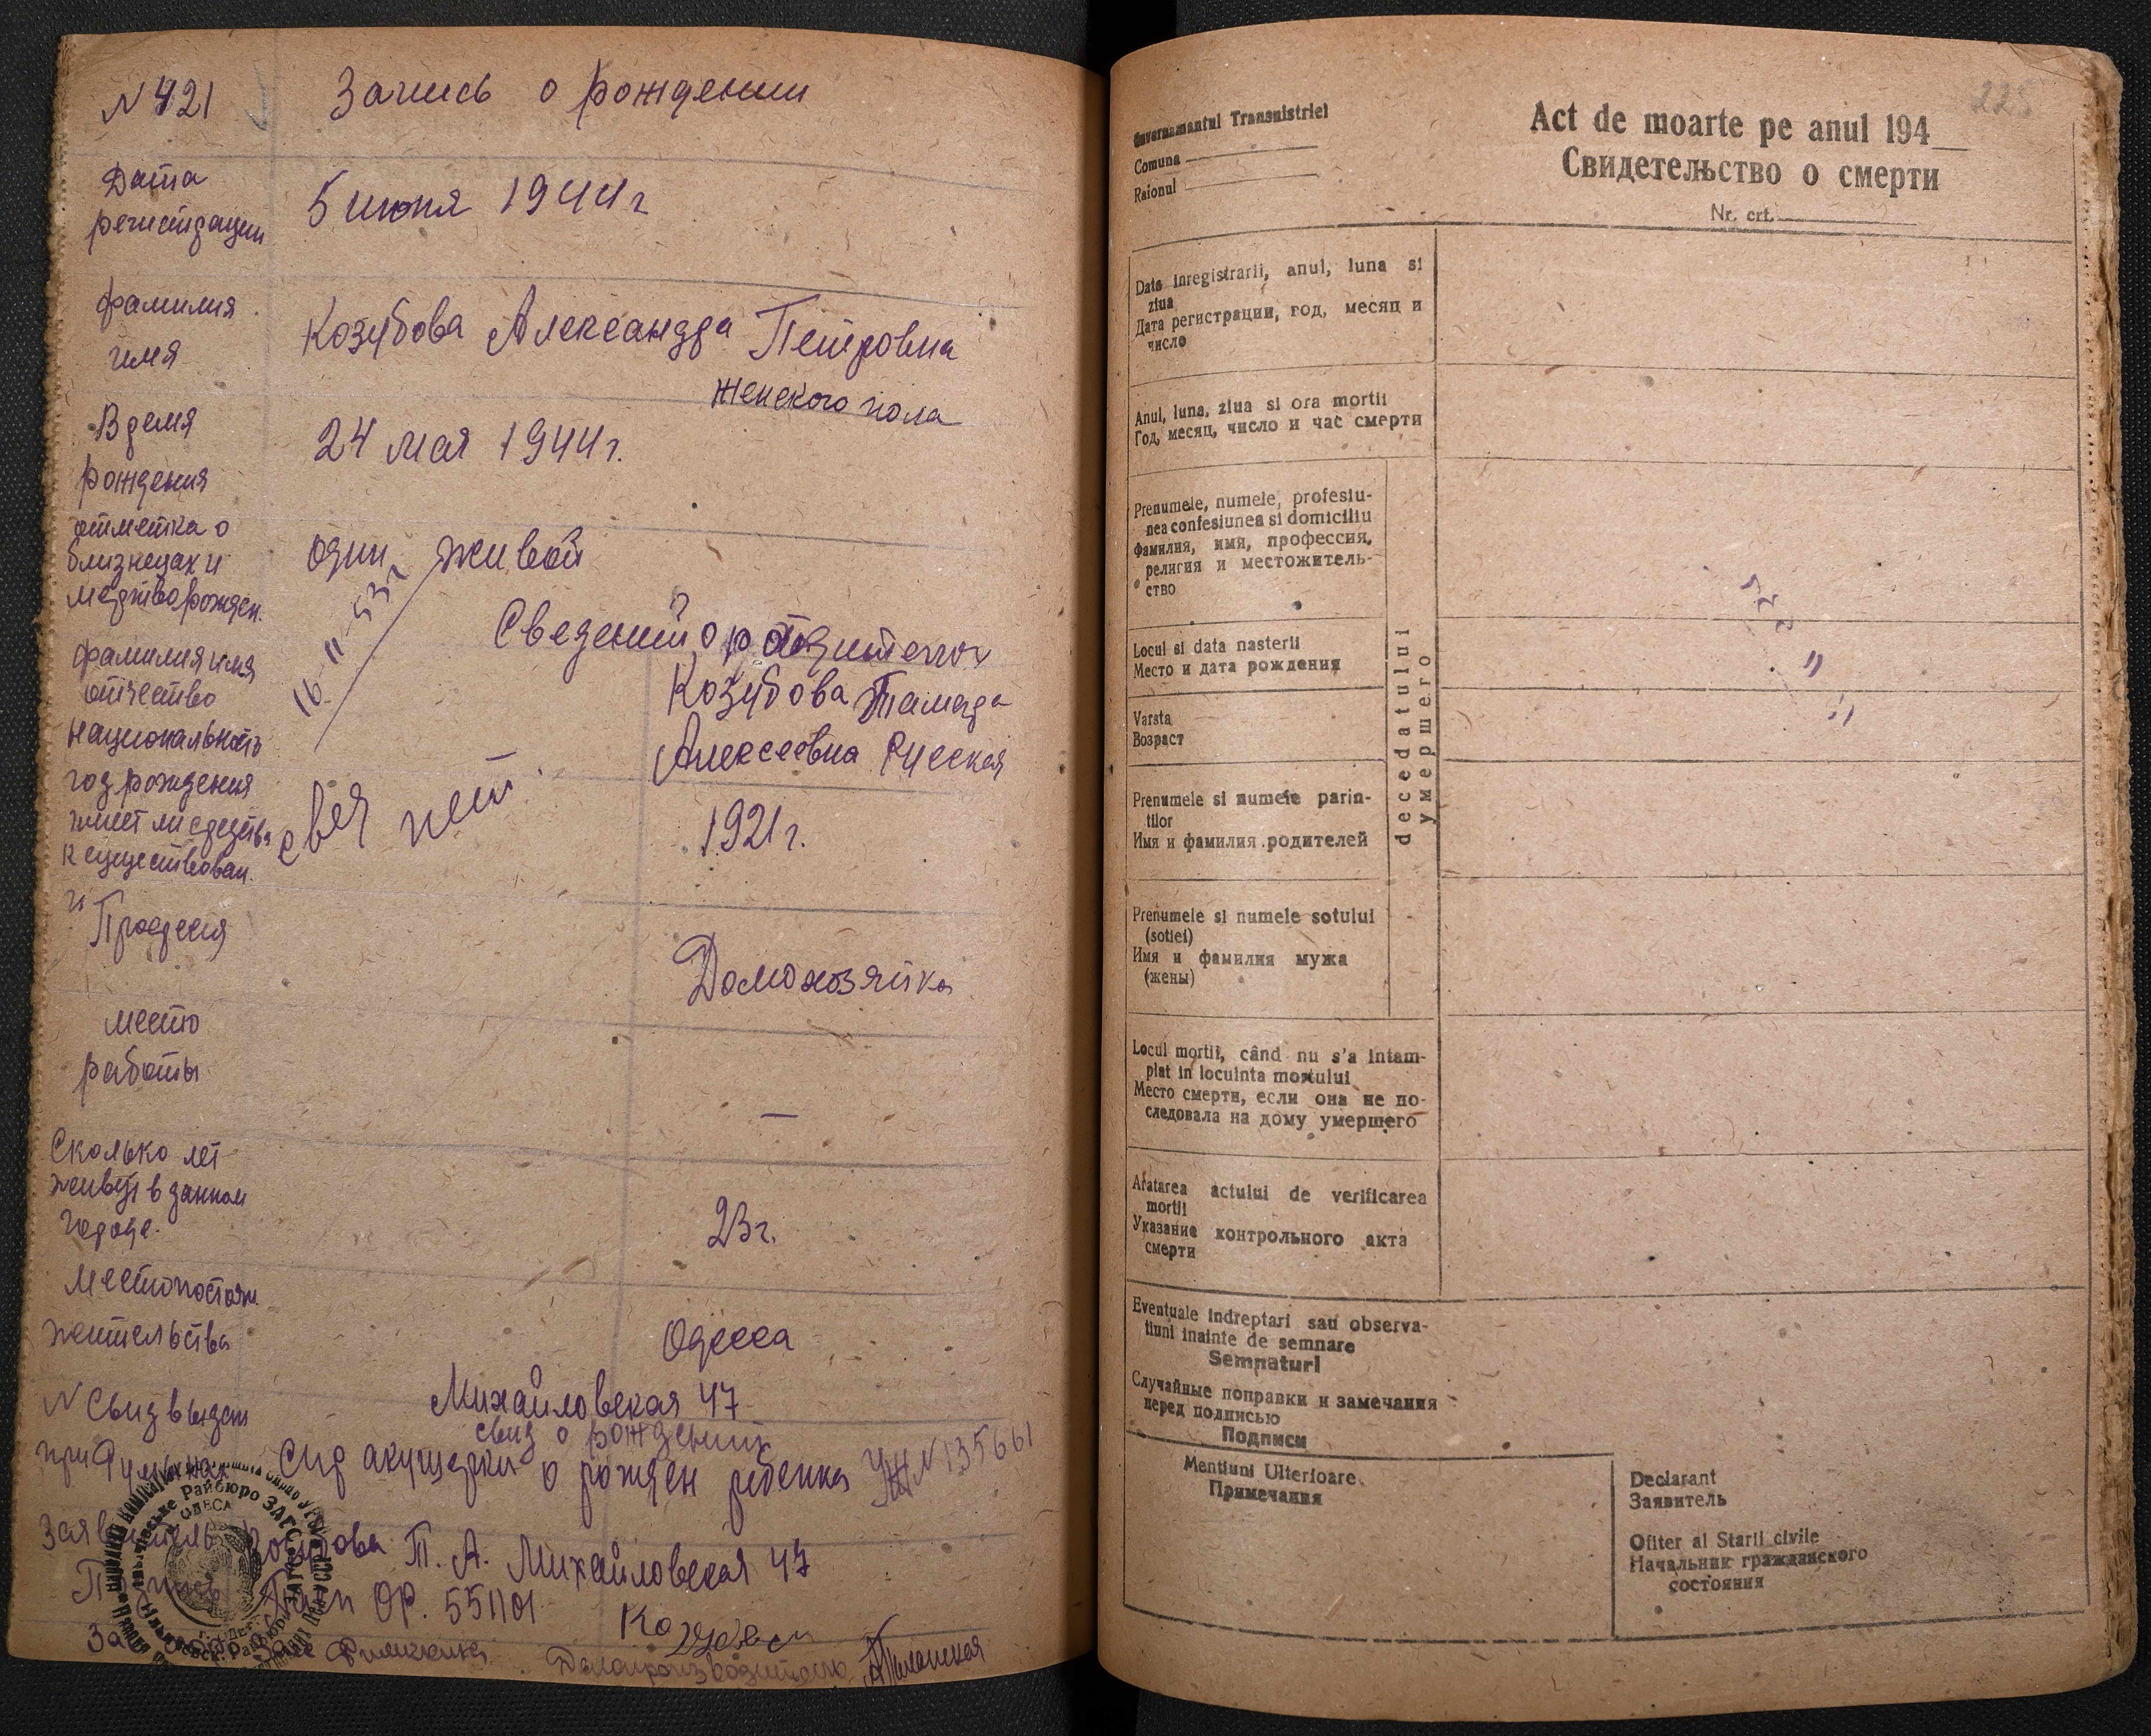 N 421 Запись о рождении
Дата
регистрации
5 июня 1944 г
фамилия
имя
Козубова Александра Петровна
женского пола
Время
рождения
24 мая 1944 г.
отметка о
близнецах и
мертворожден.
один живой
16-11-53 г
Сведений о родителях
фамилия имя
отчество
национальность
Козубова Тамара
Алексеевна Русская
год рождения
1921 г.
имеет ли средства
к существован.
свед нет
Профессия
Домохозяйка
место
работы
—
Сколько лет
живут в данном
городе.
23 г.
Место постоян.
жительства
Одесса
Михайловская 47
N Свид выдан
при Румынах
свид о рождении
Спр акушерки о рожден ребенка
УЖ N 135661
Заявитель Козубова Т. А. Михайловская 47
Подпись Пасп ОР. 551101
Козубова
Зав
Делопроизводитель
Райбюро ЗАГС
ОДЕСА
225
Guvernamantul Transnistriei
Comuna
Raionul
Act de moarte pe anul 194
Свидетельство о смерти
Nr. crt.
Data inregistrarii, anul, luna si
ziua
Дата регистрации, год, месяц и
число
Anul, luna, ziua si ora mortii
Год, месяц, число и час смерти
Prenumele, numele, profesiu-
nea confesiunea si domiciliu
фамилия, имя, профессия,
религия и местожитель-
ство
Locul si data nasterii
Место и дата рождения
Varsta
Возраст
Prenumele si numele parin-
tilor
Имя и фамилия родителей
Prenumele si numele sotului
(sotiei)
Имя и фамилия мужа
(жены)
decedatului
умершего
Locul mortii, când nu s'a intam-
plat in locuinta mortului
Место смерти, если она не по-
следовала на дому умершего
Aratarea actului de verificarea
mortii
Указание контрольного акта
смерти
Eventuale indreptari sau observa-
tiuni inainte de semnare
Semnaturi
Случайные поправки и замечания
перед подписью
Подписи
Mentiuni Ulterioare
Примечания
Declarant
Заявитель
Ofiter al Starii civile
Начальник гражданского
состояния